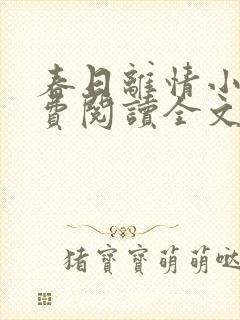 春日離情小
費閱讀全文
猪寶寶萌萌哒